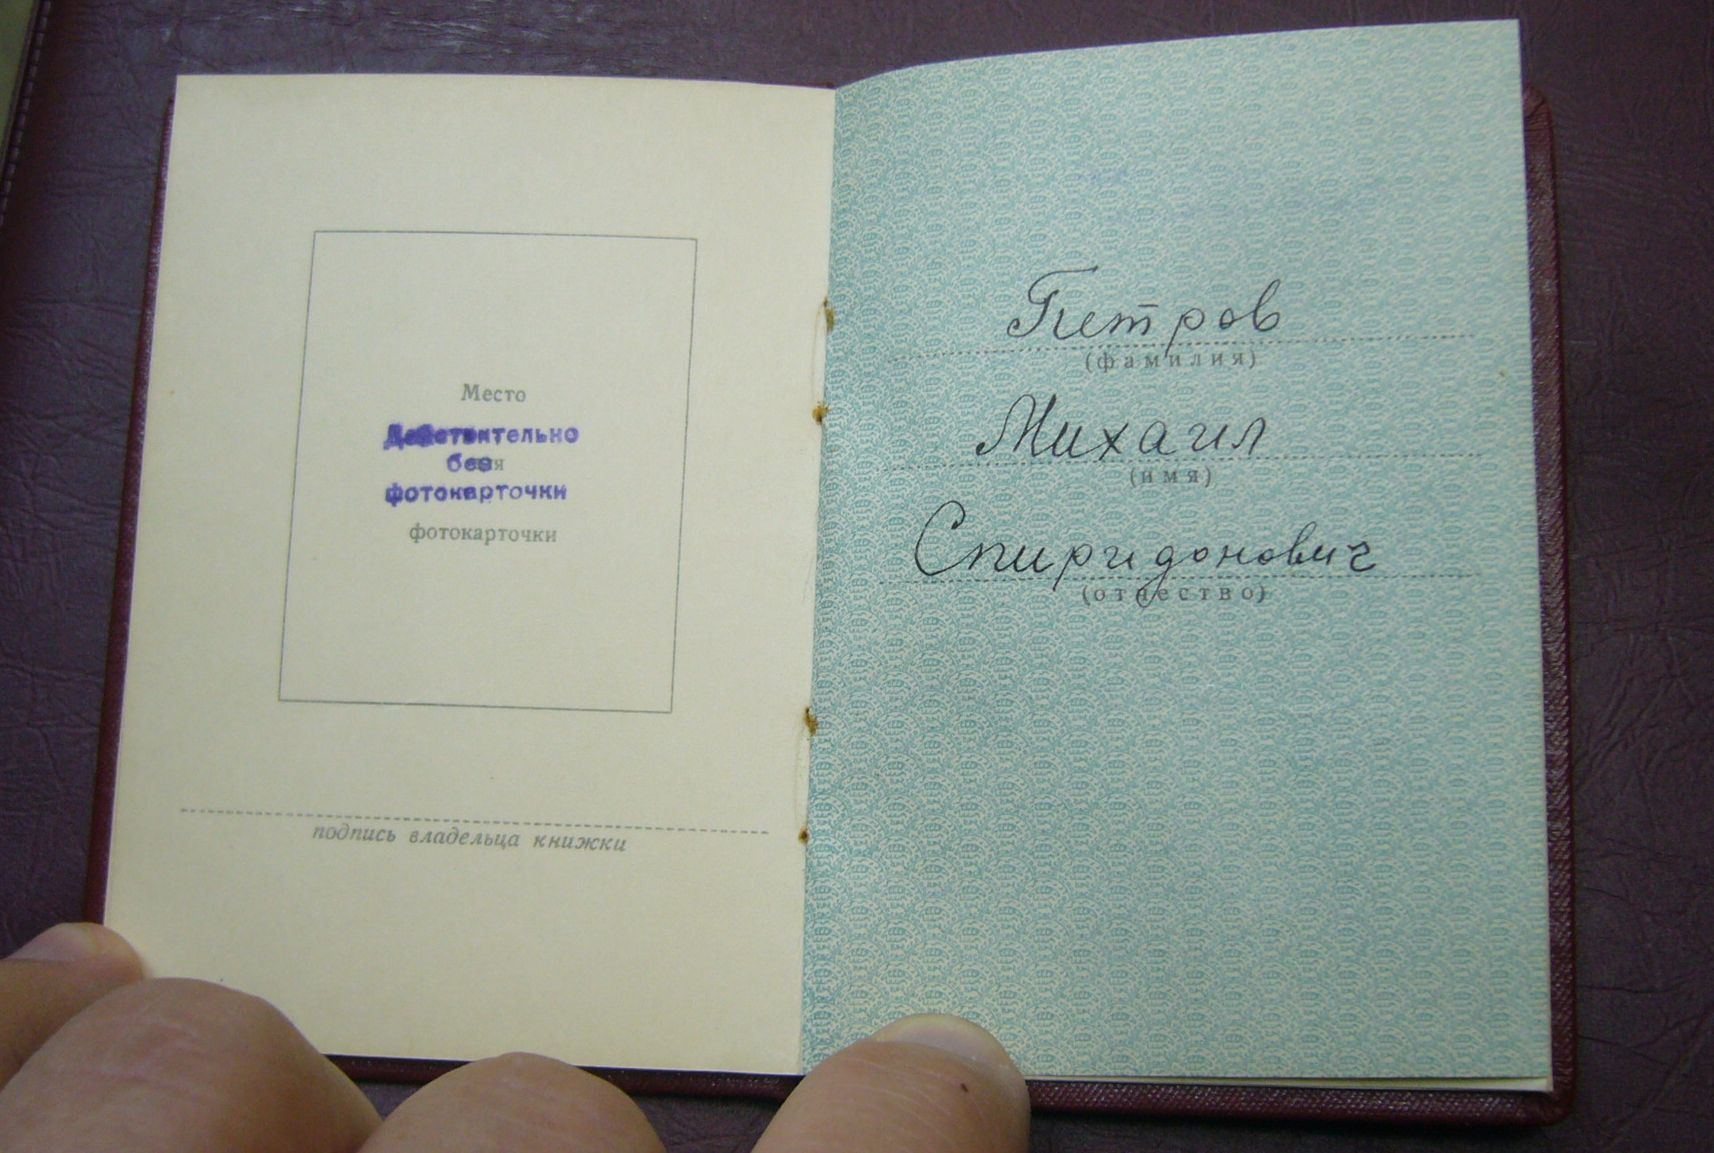 Место
Действительно
без
для
фотокарточки
фотокарточки
подпись владельца книжки
Петров
(фамилия)
Михаил
(имя)
Спиридонович
(отчество)